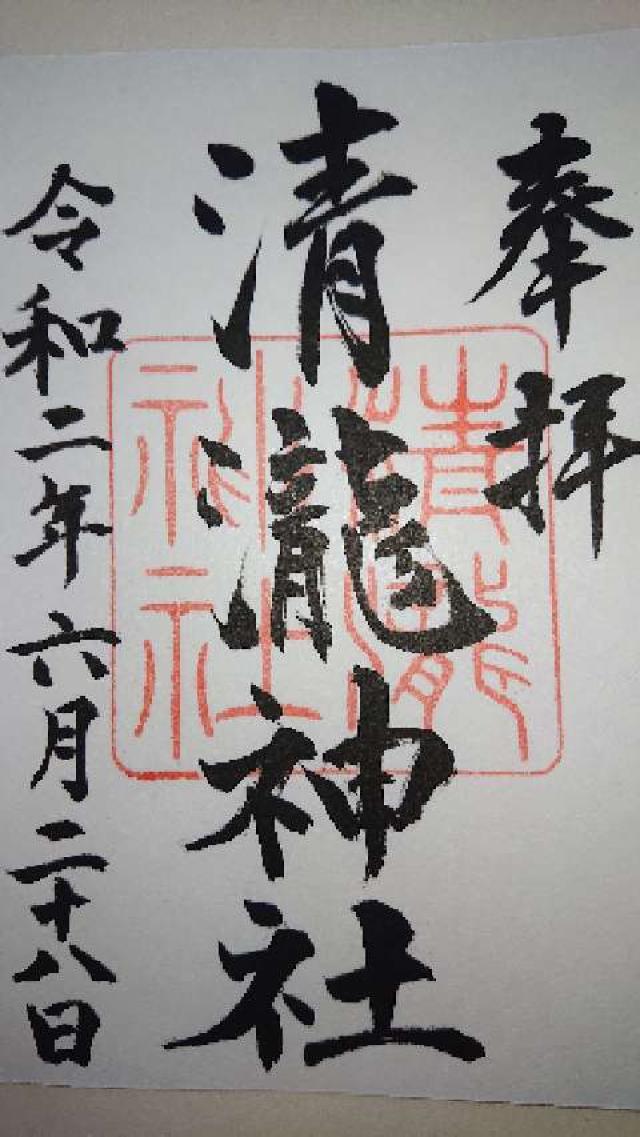 奉拝
清瀧神社
清瀧神社
令和二年六月二十八日